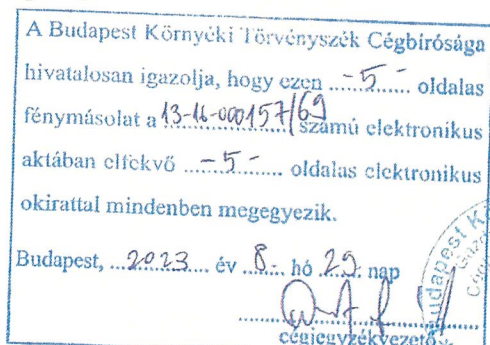 A Budapest Környéki Törvényszék Cégbírósága
hivatalosan igazolja, hogy ezen .....-5-..... oldalas
fénymásolat a 13-16-000157/69 számú elektronikus
aktában elfekvő .....-5-..... oldalas elektronikus
okirattal mindenben megegyezik.
Budapest, ...2023... év .8.. hó .29. nap
cégjegyzékvezető